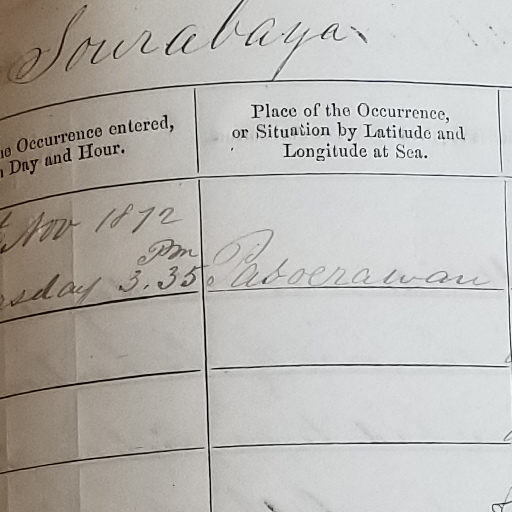 Sourabaya
Occurrence entered,
Day and Hour.
Place of the Occurrence,
or Situation by Latitude and
Longitude at Sea.
Nov 1872
Pm
rsday 3.35
Pasoerawan